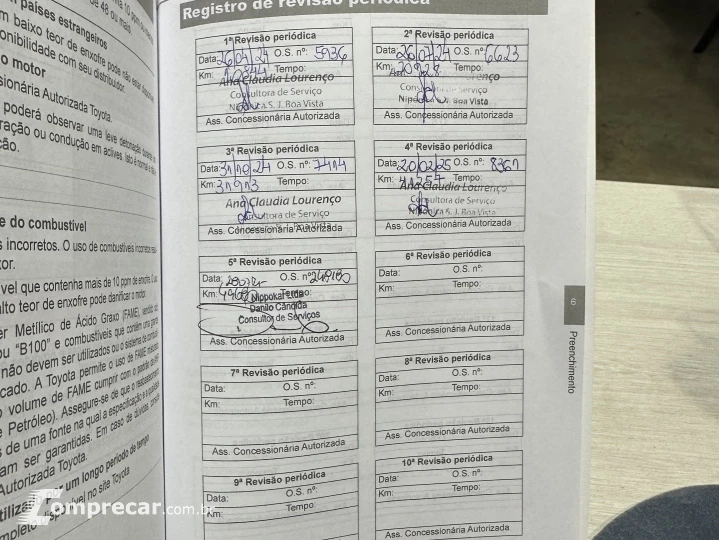 países estrangeiros
m baixo teor de enxofre pode não estar disponível
onibilidade com seu distribuidor.
o motor
sionária Autorizada Toyota.
poderá observar uma leve detonação durante
ração ou condução em aclives. Isto é normal e não
ção.
e do combustível
s incorretos. O uso de combustíveis incorretos
tor.
vel que contenha mais de 10 ppm de enxofre. O uso
alto teor de enxofre pode danificar o motor.
er Metílico de Ácido Graxo (FAME), vendido
ou "B100" e combustíveis que contêm uma
não devem ser utilizados ou o sistema de combustível
cado. A Toyota permite o uso de FAME misturado
o volume de FAME cumprir com o padrão
e Petróleo). Assegure-se de que o reabastecimento
s de uma fonte na qual a especificação e a qualidade
am ser garantidas. Em caso de dúvidas, consulte
Autorizada Toyota.
por um longo período de tempo
no site Toyota
Registro de revisão periódica
1ª Revisão periódica
Data: 26/04/24 O.S. nº: 5936
Km: 10244 Tempo:
Ana Claudia Lourenço
Consultora de Serviço
Nipokar S. J. Boa Vista
Ass. Concessionária Autorizada
2ª Revisão periódica
Data: 26/07/24 O.S. nº: 6623
Km: 20928 Tempo:
Consultora de Serviço
S. J. Boa Vista
Ass. Concessionária Autorizada
3ª Revisão periódica
Data: 31/10/24 O.S. nº: 7414
Km: 31913 Tempo:
Ana Claudia Lourenço
Consultora de Serviço
Boa Vista
Ass. Concessionária Autorizada
4ª Revisão periódica
Data: 20/02/25 O.S. nº: 8361
Km: 41257 Tempo:
Ana Claudia Lourenço
Consultora de Serviço
S. J. Boa Vista
Ass. Concessionária Autorizada
5ª Revisão periódica
Data: O.S. nº
Km: Tempo:
Nippokar Ltda
Danilo Cândida
Consultor de Serviços
Ass. Concessionária Autorizada
6ª Revisão periódica
Data: O.S. nº:
Km: Tempo:
Ass. Concessionária Autorizada
7ª Revisão periódica
Data: O.S. nº:
Km: Tempo:
Ass. Concessionária Autorizada
8ª Revisão periódica
Data: O.S. nº:
Km: Tempo:
Ass. Concessionária Autorizada
9ª Revisão periódica
Data: O.S. nº:
Km: Tempo:
10ª Revisão periódica
Data: O.S. nº:
Km: Tempo:
Ass. Concessionária Autorizada
6
Preenchimento
Comprecar.com.br